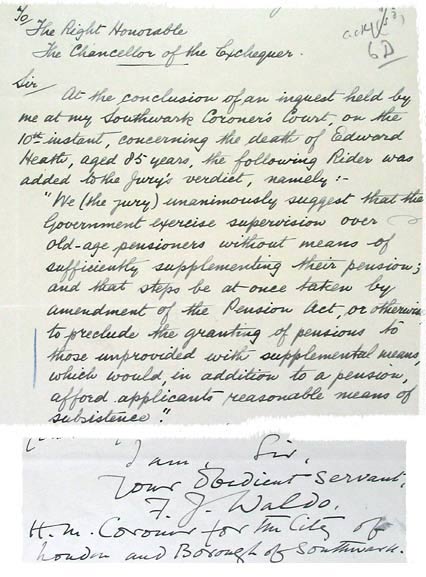 To
The Right Honorable
The Chancellor of the Exchequer.
6D
Sir/
At the conclusion of an inquest held by
me at my Southwark Coroner's Court, on the
10th instant, concerning the death of Edward
Heath, aged 85 years, the following Rider was
added to the Jury's verdict, namely:-
"We (the jury) unanimously suggest that the
Government exercise supervision over
old-age pensioners without means of
sufficiently supplementing their pension;
and that steps be at once taken by
amendment of the Pension Act, or otherwise
to preclude the granting of pensions to
those unprovided with supplemental means,
which would, in addition to a pension,
afford applicants reasonable means of
subsistence".
I am, Sir,
Your Obedient Servant,
F. J. Waldo,
H.M. Coroner for the City of
London and Borough of Southwark.